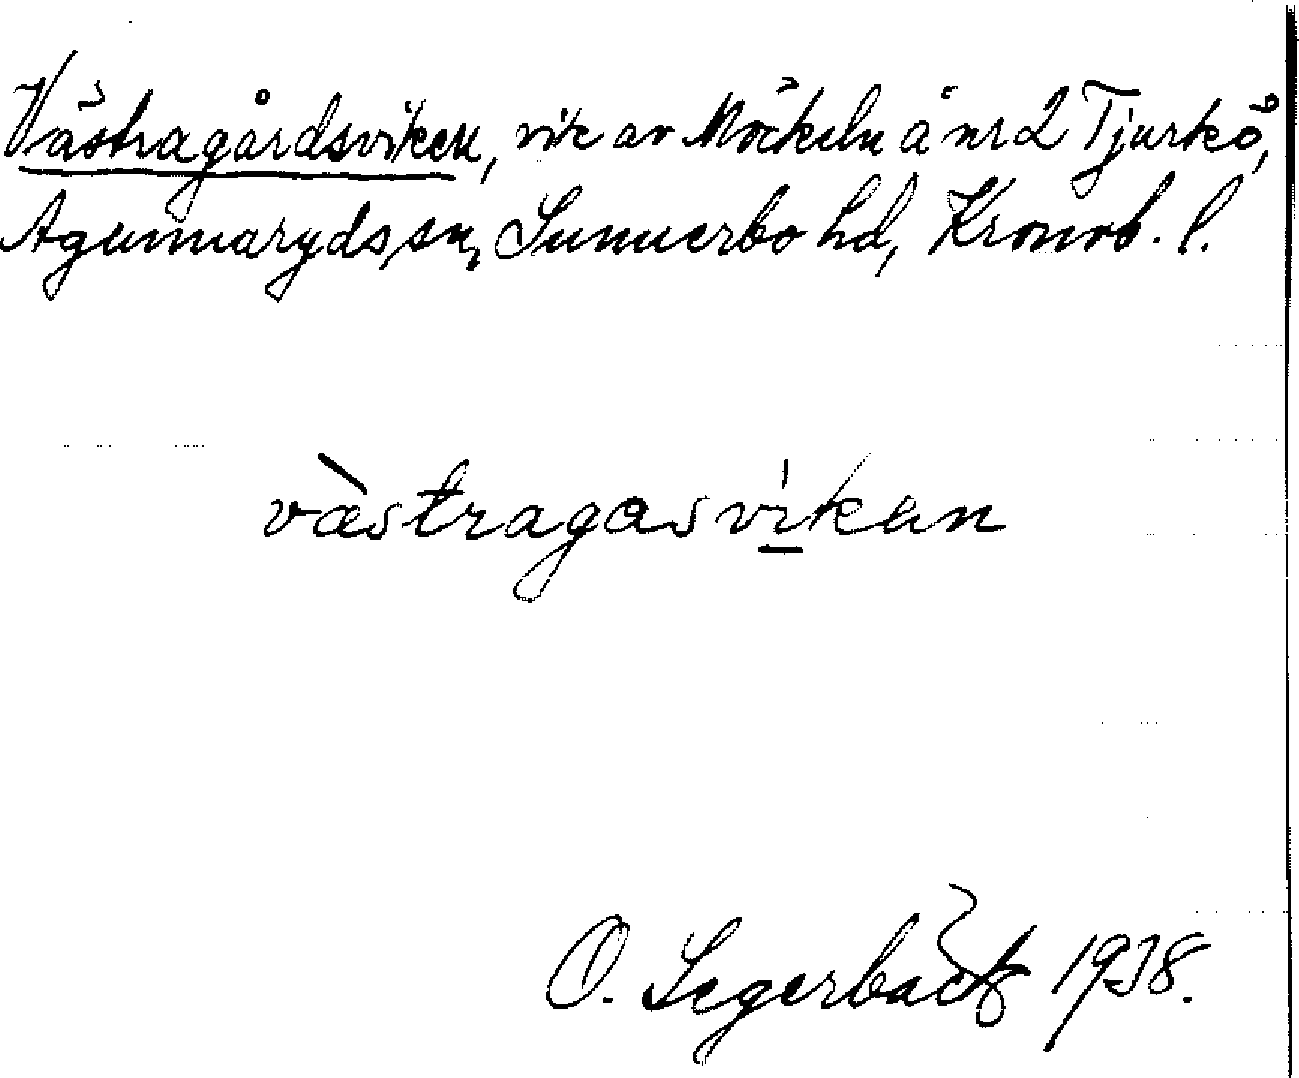 Västragårdsviken, vik av Möckeln å nr 2 Tjurkö,
Agunnaryds sn, Sunnerbo hd, Kronob. l.
vàstragasvikan
O. Segerbäck 1938.